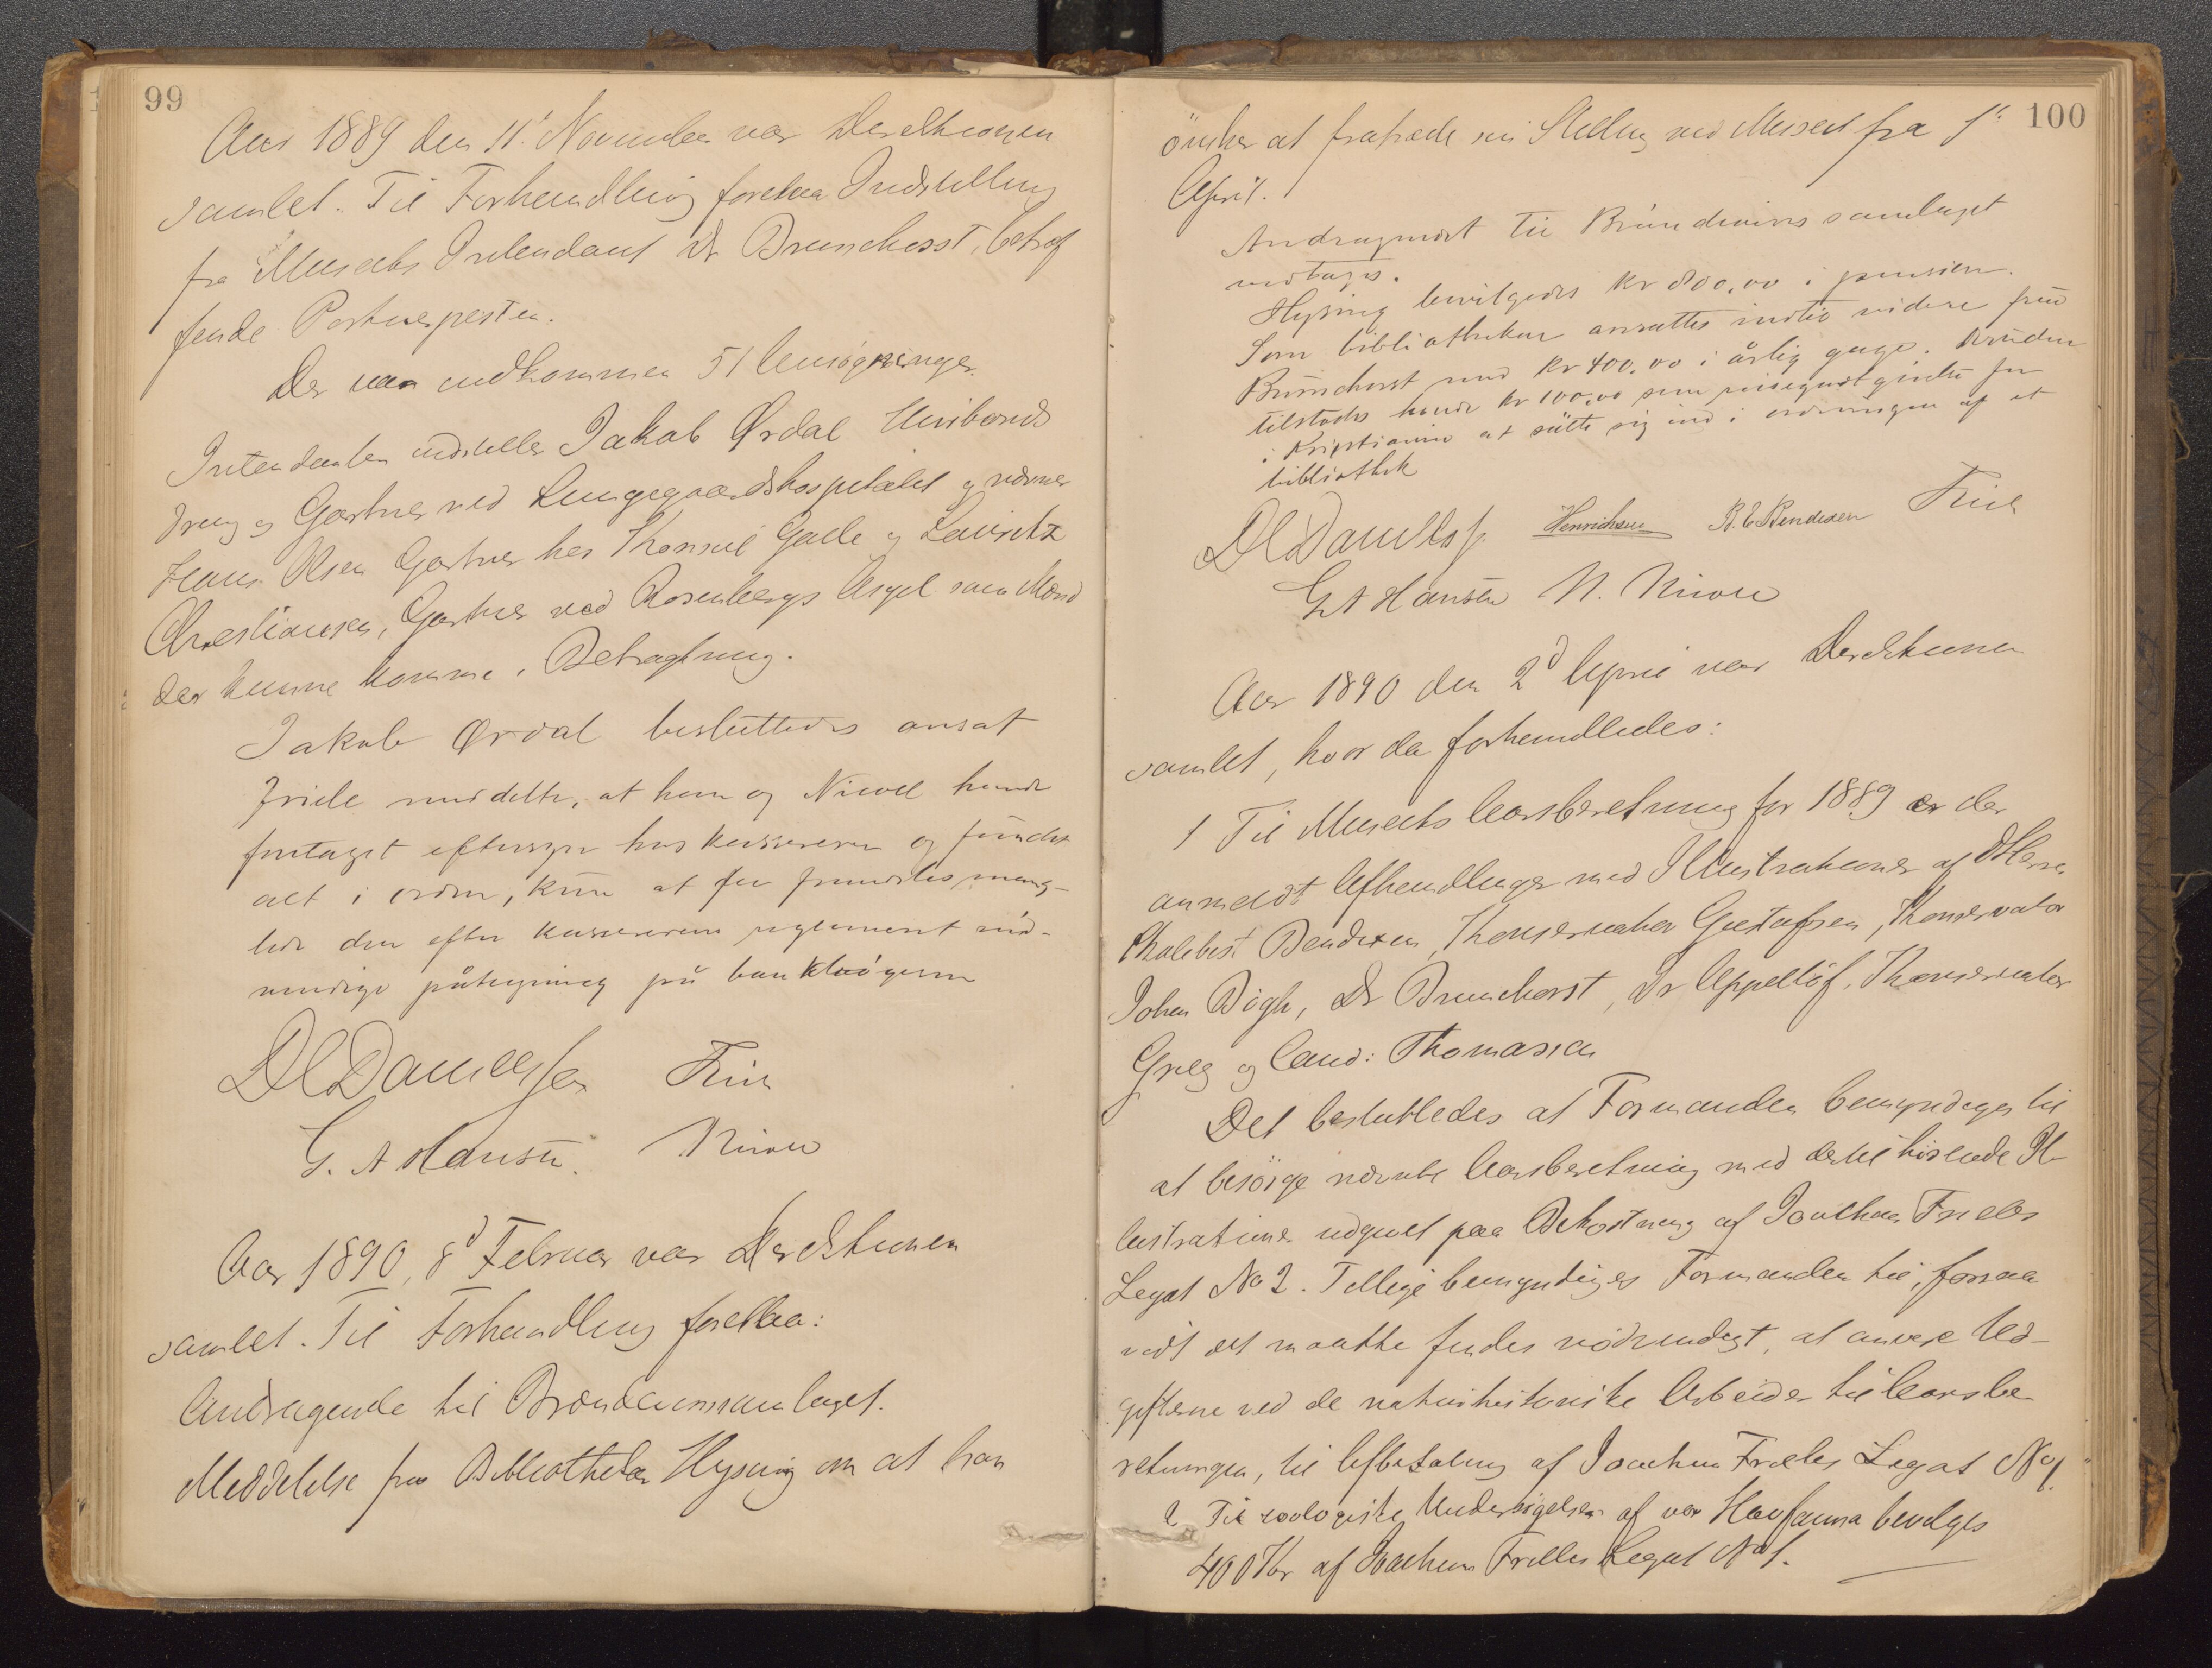 99
Aar 1889 den 11' November var Derektionen
samlet. Til Forhandling forelaa Indstilling
fra Museets Intendant Dr Brunchorst, betræf
fende Portnerposten.
Der var indkommen 51 Ansøgninger.
Intendanten indstiller Jakob Ørdal
dreng og Gartner ved Lungegaardshospitalet og nævner
Hans Olsen Gartner hos Konsul Gade og Lauritz
Christiansen, Gartner ved Rosenbergs Asyl som Mænd
der kunne komme i Betragtning.
Jakob Ørdal besluttedes ansat
Friele meddelte, at han og Nicoll havde
foretaget eftersyn hos kassereren og fundet
alt i orden, kun at der fremdeles mang-
lede den efter kassererens reglement nød-
vendige påtegning på bankbøgerne
D C Danielssen Friele
G. A Hansen. Nicoll
Aar 1890, 8d Februar var Derektionen
samlet. Til Forhandling forelaa:
Andragende til Brændevinssamlaget.
Meddelelse fra Bibliothekar Hysing om at han
100
önsker at fratræde sin Stilling ved Museet fra 1ste
April.
Andragendet til Brændevinssamlaget
vedtages.
Hysing bevilgedes kr 800,00 i pension.
Som bibliothekar ansattes indtil videre frue
Brunchorst med kr 400,00 i årlig gage. Desuden
tilstodes hende kr 100,00 som reisegodtgjørelse for
i Kristiania at sætte sig ind i ordningen af et
bibliothek
D C Danielssen Henrichsen B. E Bendixen Friele
G A Hansen N. Nicoll
Aar 1890 den 2d April var Derektionen
samlet, hvor da forhandledes:
1 Til Museets Aarsberetning for 1889 er der
anmeldt Afhandlinger med Illustrationer af d'Herrer
Skolebest. Bendixen, Konservator Gustafson, Konservator
Johan Bøgh, Dr Brunchorst, Dr Appellöf, Konservator
Grieg og Cand: Thomassen
Det besluttedes at Formanden bemyndiges til
at besørge nævnte Aarsberetning med dertil hörende Il-
lustrationer udgivet paa Bekostning af Joachim Frieles
Legat No 2. Tillige bemyndiges Formanden til, forsaa
vidt det maatte findes nödvendigt, at anvise Ud-
gifterne ved de naturhistoriske Arbeider til Aarsbe
retningen, til Afbetaling af Joachim Frieles Legat No 1.
2 Til zoologiske Undersøgelser af vor Havfauna bevilges
400 Kr af Joachim Frieles Legat No 1.